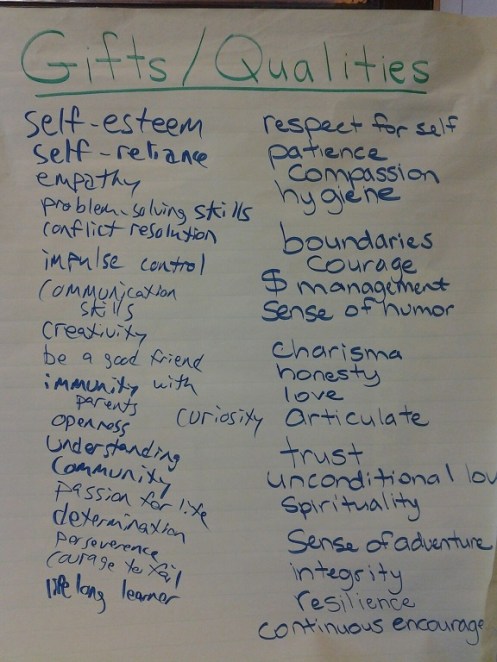 Gifts/Qualities
self-esteem
self-reliance
empathy
problem-solving skills
conflict resolution
impulse control
communication
skills
creativity
be a good friend
immunity with
parents
openness
understanding
community
passion for life
determination
perseverence
courage to fail
life long learner
curiosity
respect for self
patience
compassion
hygiene
boundaries
courage
$ management
sense of humor
charisma
honesty
love
articulate
trust
unconditional lov
spirituality
sense of adventure
integrity
resilience
continuous encourage